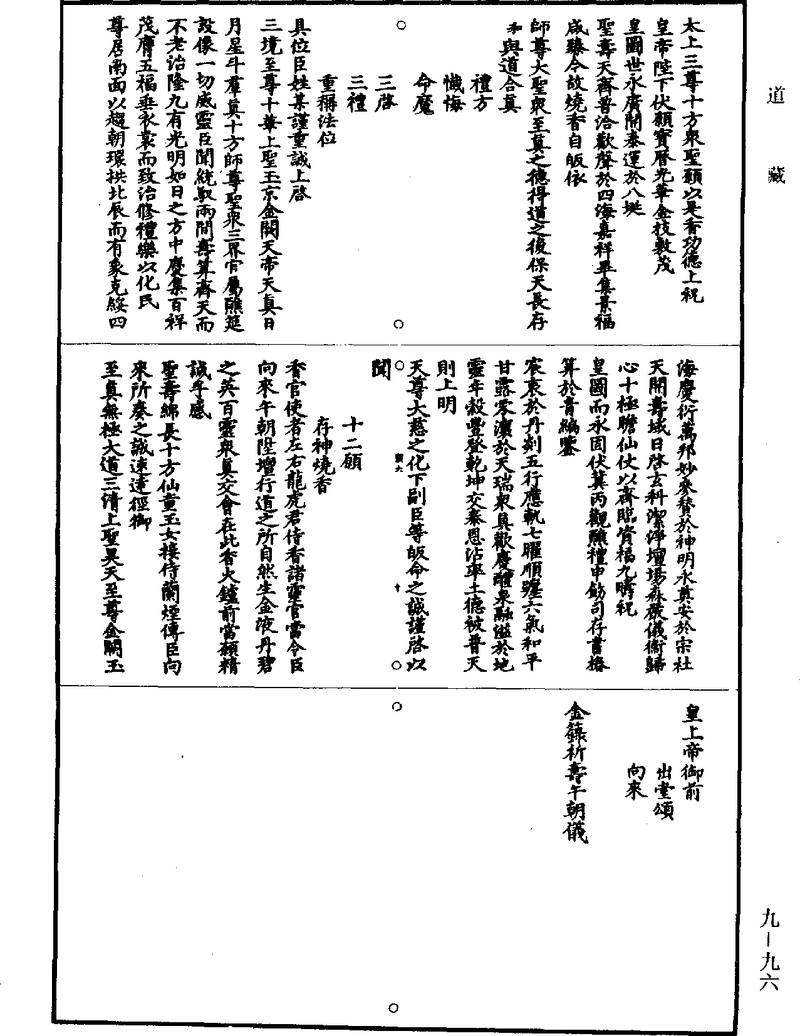 道藏
太上三尊十方衆聖願以是香功德上祝
皇帝陛下伏願寶曆光華金枝敷茂
皇圖世永廣開泰運於八埏
聖壽天齊普洽歡聲於四海嘉祥畢集景福
咸臻令故燒香自皈依
師尊大聖衆至真之德得道之後保天長存
與道合真
禮方
懺悔
命魔
三啓
三禮
重稱法位
具位臣姓某謹重誠上啓
三境至尊十華上聖玉京金闕天帝天真日
月星斗羣真十方師尊聖衆三界官屬醮筵
設像一切威靈臣聞統馭兩間壽算齊天而
不老治隆九有光明如日之方中慶集百祥
茂膺五福垂衣裳而致治修禮樂以化民
尊居南面以趨朝環拱北辰而有象克綏四
海慶衍萬邦妙參替於神明永奠安於宗社
天開壽域日啓玄科潔淨壇場森嚴儀衛歸
心十極瞻仙仗以齊臨資福九疇祝
皇圖而永固伏冀丙觀醮禮申飭司存書椿
算於青編鑒
宸衷於丹剡五行應軌七曜順躔六氣和平
甘露零瀼於天瑞衆真歡慶醴泉融溢於地
靈年穀豐登乾坤交泰恩沾率土德被普天
則上明
天尊大慈之化下副臣等皈命之誠謹啓以
聞
十二願
存神燒香
香官使者左右龍虎君侍香諸靈官當令臣
向來午朝陞壇行道之所自然生金液丹碧
之英百靈衆真交會在此香火鑪前當願精
誠孚感
聖壽綿長十方仙童玉女接侍蘭煙傳臣向
來所奏之誠速達徑御
至真無極大道三清上聖昊天至尊金闕玉
皇上帝御前
出堂頌
向來
金籙祈壽午朝儀
九－九六